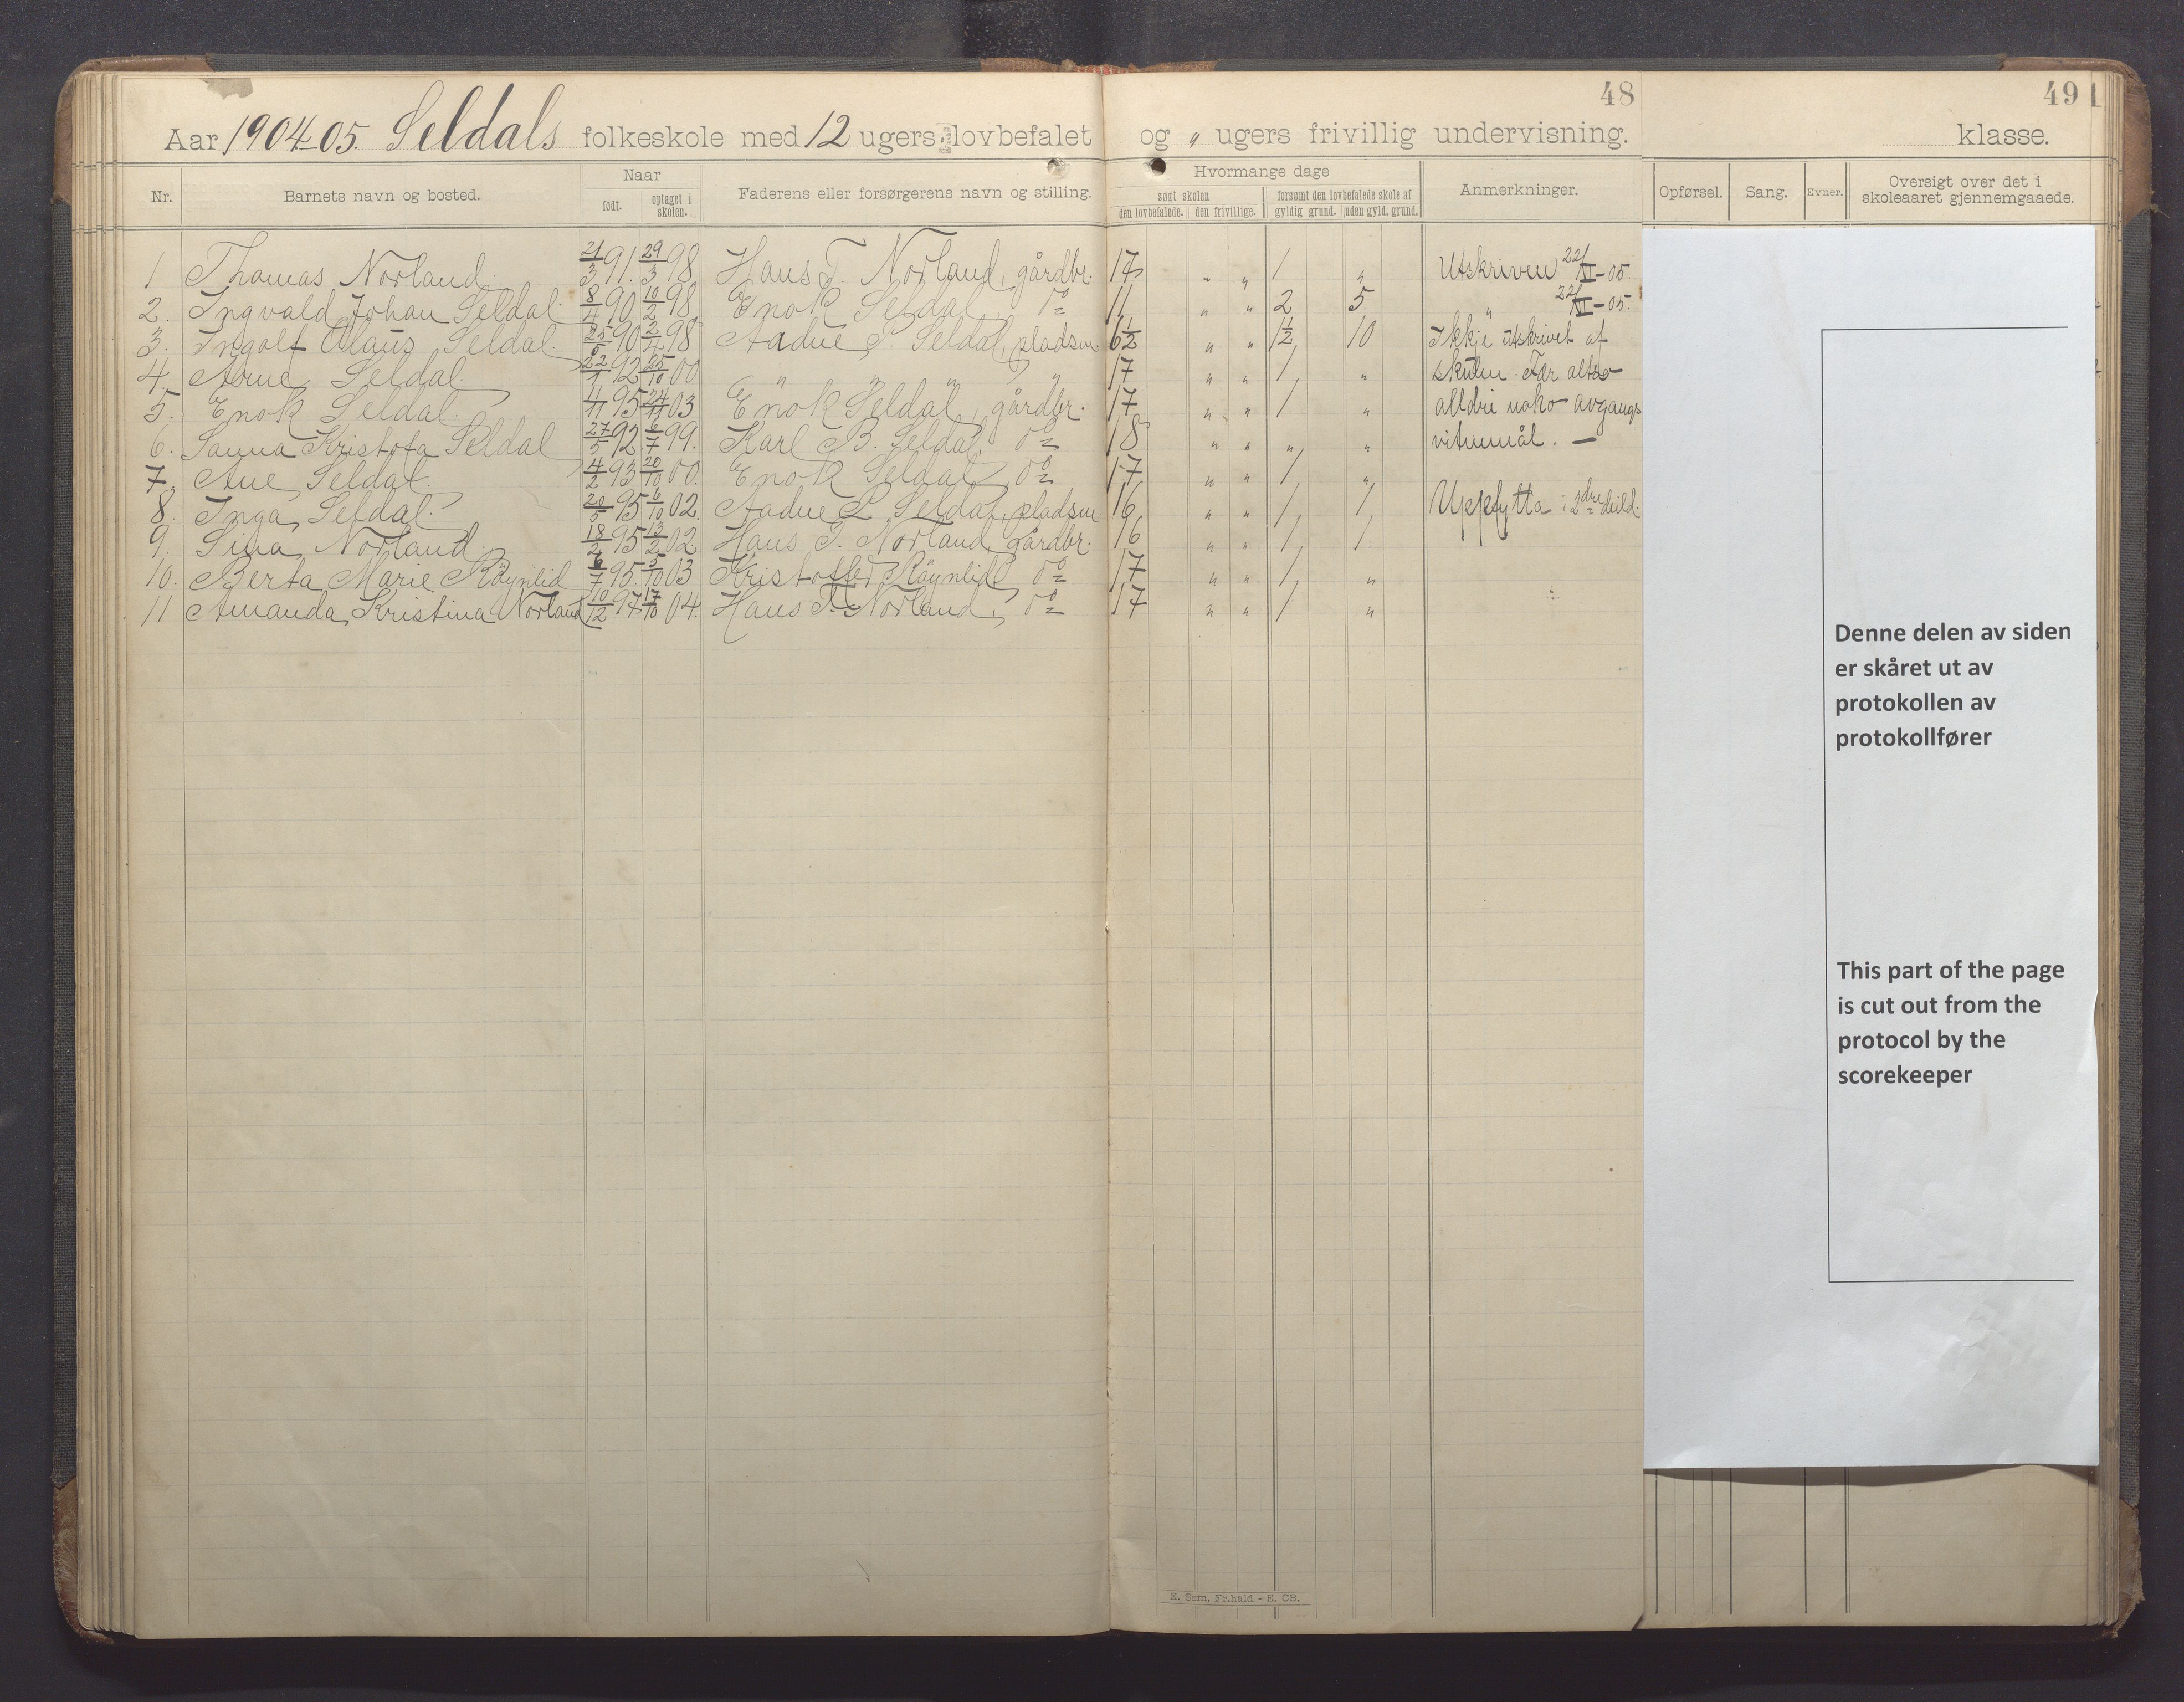 48
49
Aar 1904-05. Seldals folkeskole med 12 ugers lovbefalet og " ugers frivillig undervisning.
klasse.
Nr. Barnets navn og bosted. Naar født. optaget i skolen. Faderens eller forsørgerens navn og stilling. Hvormange dage søgt skolen den lovbefalede. den frivillige. forsømt den lovbefalede skole af gyldig grund. uden gyld. grund. Anmerkninger. Opførsel. Sang. Evner. Oversigt over det i skoleaaret gjennemgaaede.
1 Thomas Norland. 21/3 91. 29/3 98 Hans T. Norland, gårdbr. 17 " " 1 " Utskriven 22/VI-05.
2. Ingvald Johan Seldal. 8/4 90 10/2 98 Enok Seldal, do 11 " " 2 5 " 22/VI-05.
3. Ingolf Olaus Seldal. 25/5 90 2/4 98 Aadne P. Seldal, pladsm. 6 1/2 " " 1 1/2 10 Ikkje utskrivet af
4. Arne Seldal. 22/1 92 25/10 00 " " " " 17 " " 1 " skulen. Fær altso
5. Enok Seldal. 4/11 95 24/11 03 Enok Seldal, gårdbr. 17 " " 1 " alldri noko avgangs
6. Sanna Kristofa Seldal 27/5 92 6/7 99. Karl B. Seldal, do 18 " " " " vitnemål. —
7. Ane Seldal. 4/2 93 20/10 00. Enok Seldal, do 17 " " 1 "
8. Inga Seldal. 20/5 95 6/10 02. Aadne P. Seldal, pladsm. 16 " " 1 1 Uppflytta i 2dre deild.
9. Sina Norland. 18/2 95 13/2 02 Hans T. Norland, gårdbr. 16 " " 1 1
10. Berta Marie Röynlid 6/7 95. 5/10 03 Kristoffer Röynlid do 17 " " 1 "
11 Amanda Kristina Norland 10/12 97 17/10 04. Hans T. Norland, do 17 " " 1 "
Denne delen av siden
er skåret ut av
protokollen av
protokollfører
This part of the page
is cut out from the
protocol by the
scorekeeper
E. Sem, Fr.hald - E. CB.